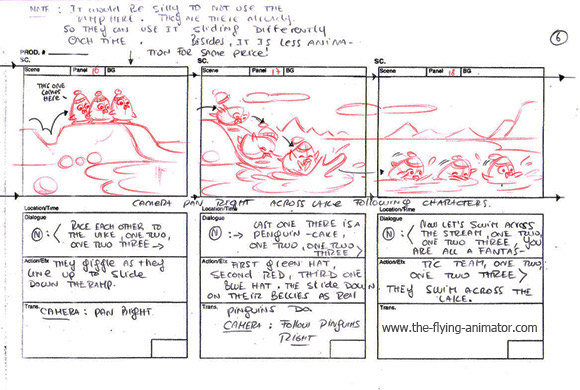 NOTE : It would be silly to not use the
RAMP HERE. They are there already.
So they can use it sliding differently
each time. Besides, it is less anima-
tion for same price!
6
PROD. #
SC.
SC.
SC.
Scene Panel 16 BG
Scene Panel 17 BG
Scene Panel 18 BG
THIS ONE
COMES
HERE
CAMERA PAN RIGHT ACROSS LAKE FOLLOWING CHARACTERS.
Location/Time
Dialogue
N : < RACE EACH OTHER TO
THE LAKE, ONE TWO,
ONE TWO THREE →
Action/Efx
THEY GIGGLE AS THEY
LINE UP TO SLIDE
DOWN THE RAMP.
Trans.
CAMERA : PAN RIGHT.
Location/Time
Dialogue
N : → LAST ONE THERE IS A
PENGUIN-CAKE,
ONE TWO, ONE TWO
THREE >
Action/Efx
FIRST GREEN HAT,
SECOND RED, THIRD ONE
BLUE HAT. THE SLIDE DOWN
ON THEIR BELLIES AS REAL
Trans.
PINGUINS DO.
CAMERA : Follow PINGUINS
RIGHT
Location/Time
Dialogue
N : < NOW LET'S SWIM ACROSS
THE STREAM, ONE TWO,
ONE TWO THREE, YOU
ARE ALL A FANTAS-
Action/Efx
TIC TEAM, ONE TWO,
ONE TWO THREE >
THEY SWIM ACROSS THE
LAKE.
Trans.
www.the-flying-animator.com